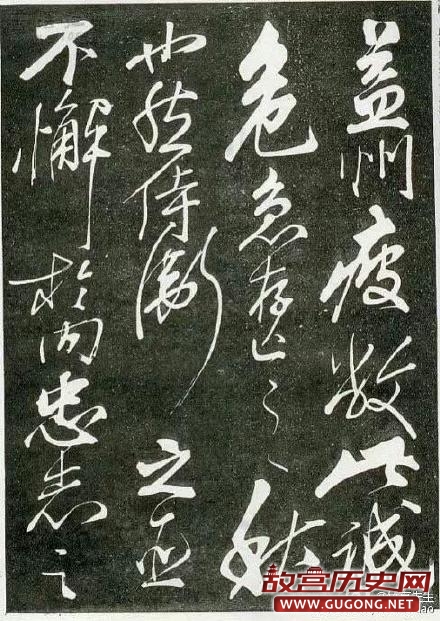 益州疲敝此誠
危急存亡之秋
也然侍衛之臣
不懈於內忠志之
故宫历史网
WWW.GUGONG.NET